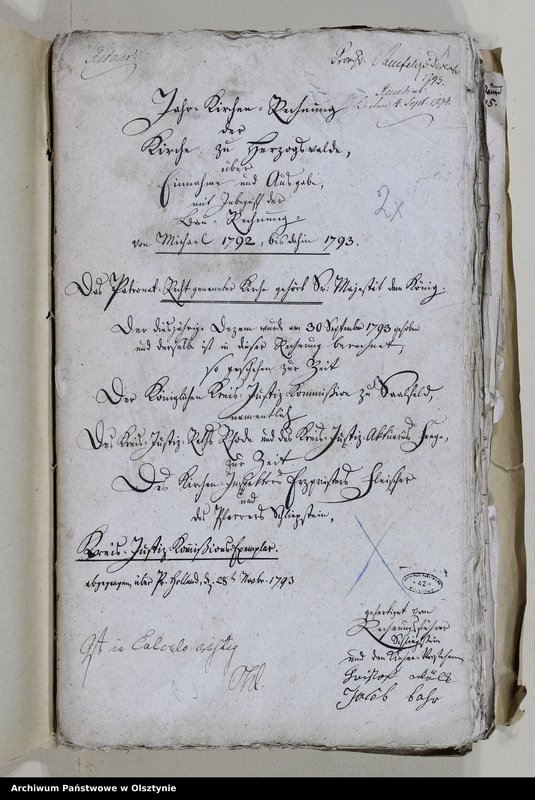 Jahr-Kirchen-Rechnung
der
Kirche zu Herzogswalde,
über
Einnahme und Ausgabe,
mit Inbegriff der
Bau-Rechnung,
von Michael 1792, bis dahin 1793.
2x
Das Patronat-Recht genannter Kirche gehört Sr. Majestät dem König.
Der diesjährige Dezem wurde am 30 September 1793 gehoben
und derselbe ist in dieser Rechnung berechnet,
so geschehen zur Zeit
Der Königlichen Kreis-Justiz-Kommißion zu Saalfeld,
namentlich
Des Kreis-Justiz-Raths Rhode und des Kreis-Justiz-Aktuarius
zur Zeit
Des Kirchen-Inspektors Erzpriesters Fleischer
und
des Pfarrers Schliepstein,
Kreis-Justiz-Komißions Exemplar.
abgegangen über Pr. Holland, d. 28t Novbr. 1793
42
gefertiget vom
Rechnungsführer
Schliepstein
und den Kirchen-Vorstehern
Jacob bahr
Ist in Calculo richtig
Archiwum Państwowe w Olsztynie